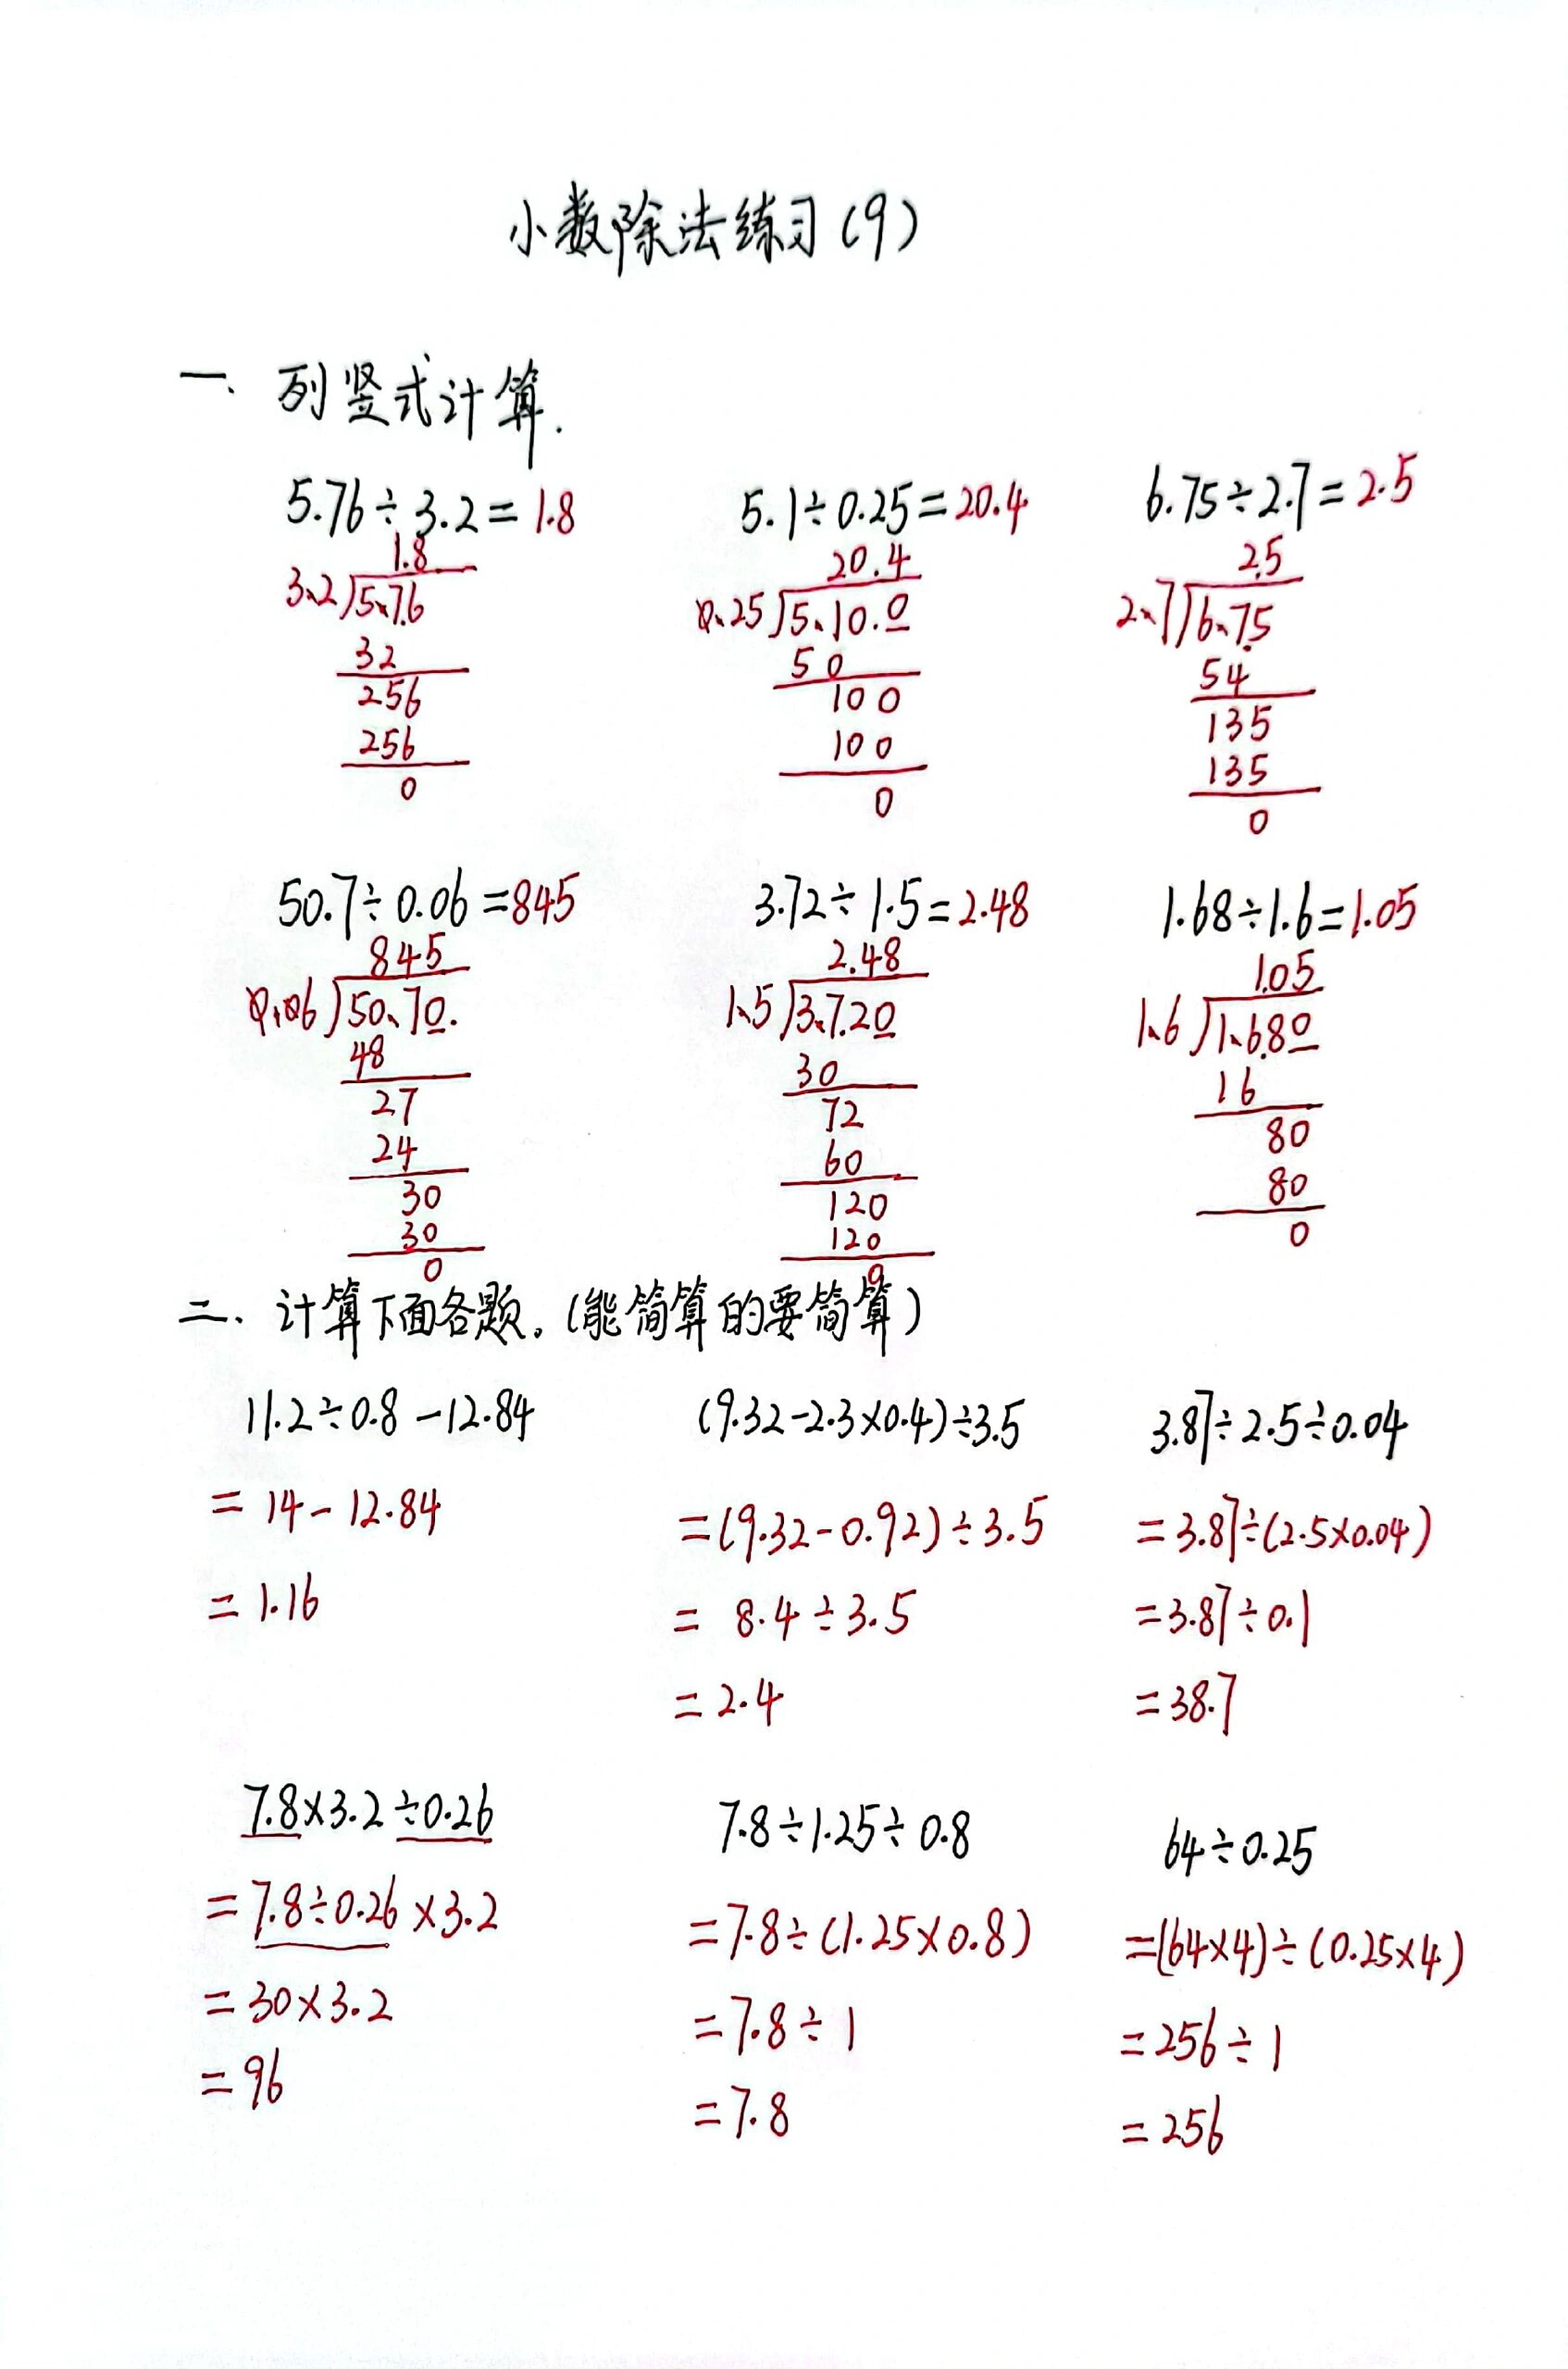 小数除法练习(9)
一、列竖式计算.
5.76÷3.2=1.8 5.1÷0.25=20.4 6.75÷2.7=2.5
1.8 20.4 2.5
3.2 5.76 0.25 5.10.0 2.7 6.75
32 50 54
256 100 135
256 100 135
0 0 0
50.7÷0.06=845 3.72÷1.5=2.48 1.68÷1.6=1.05
845 2.48 1.05
0.06 50.70. 1.5 3.7.20 1.6 1.6.80
48 30 16
27 72 80
24 60 80
30 120 0
30 120
0 0
二、计算下面各题。(能简算的要简算)
11.2÷0.8-12.84 (9.32-2.3×0.4)÷3.5 3.87÷2.5÷0.04
=14-12.84 =(9.32-0.92)÷3.5 =3.87÷(2.5×0.04)
=1.16 =8.4÷3.5 =3.87÷0.1
=2.4 =38.7
7.8×3.2÷0.26 7.8÷1.25÷0.8 64÷0.25
=7.8÷0.26×3.2 =7.8÷(1.25×0.8) =(64×4)÷(0.25×4)
=30×3.2 =7.8÷1 =256÷1
=96 =7.8 =256